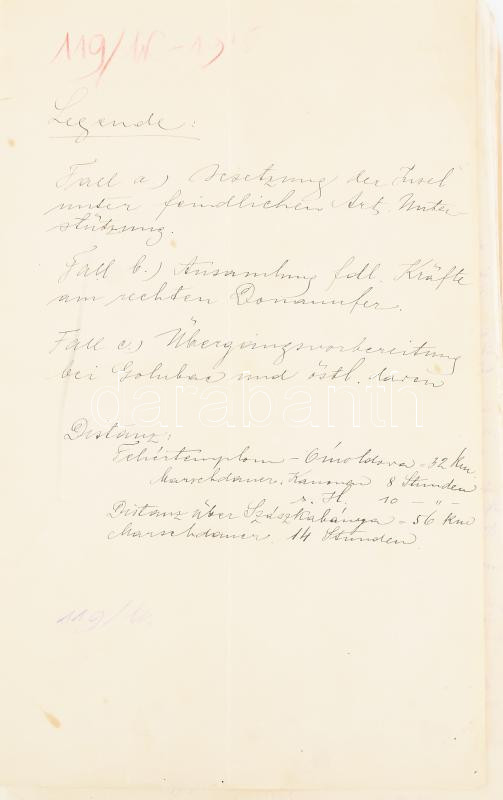 119/W - 19
Legende:
Fall a.) Besetzung der Insel
unter feindlichen Art. Unter-
stützung.
Fall b.) Ansamlung fdl. Kräfte
am rechten Donauufer.
Fall c.) Übergangsvorbereitung
bei Golubac und östl. davon
darabanth
Distanz:
Fehértemplom - Ómoldova = 32 Km
Marschdauer, Kanonen 8 Stunden
s. H. 10 - „ -
Distanz über Szászkabánya = 56 Km
Marschdauer. 14 Stunden.
119/W.